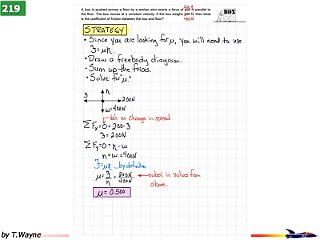 219
A box is pushed across a floor by a worker who exerts a force of 200 N parallel to
the floor. The box moves at a constant velocity. If the box weighs 400 N then what
is the coefficient of friction between the box and floor?
BOX
STRATEGY
• Since you are looking for μ, you will need to use
ℑ=μn.
• Draw a freebody diagram.
• Sum up the forces.
• Solve for "μ"
n
ℑ 200N
w=400N
no change in speed
ΣFx=0=200-ℑ
ℑ=200N
ΣFy=0=n-w
n=w=400N
ℑ=μn by definition
μ=ℑ/n=200N/400N subst in values from
above.
μ=0.500
by T.Wayne